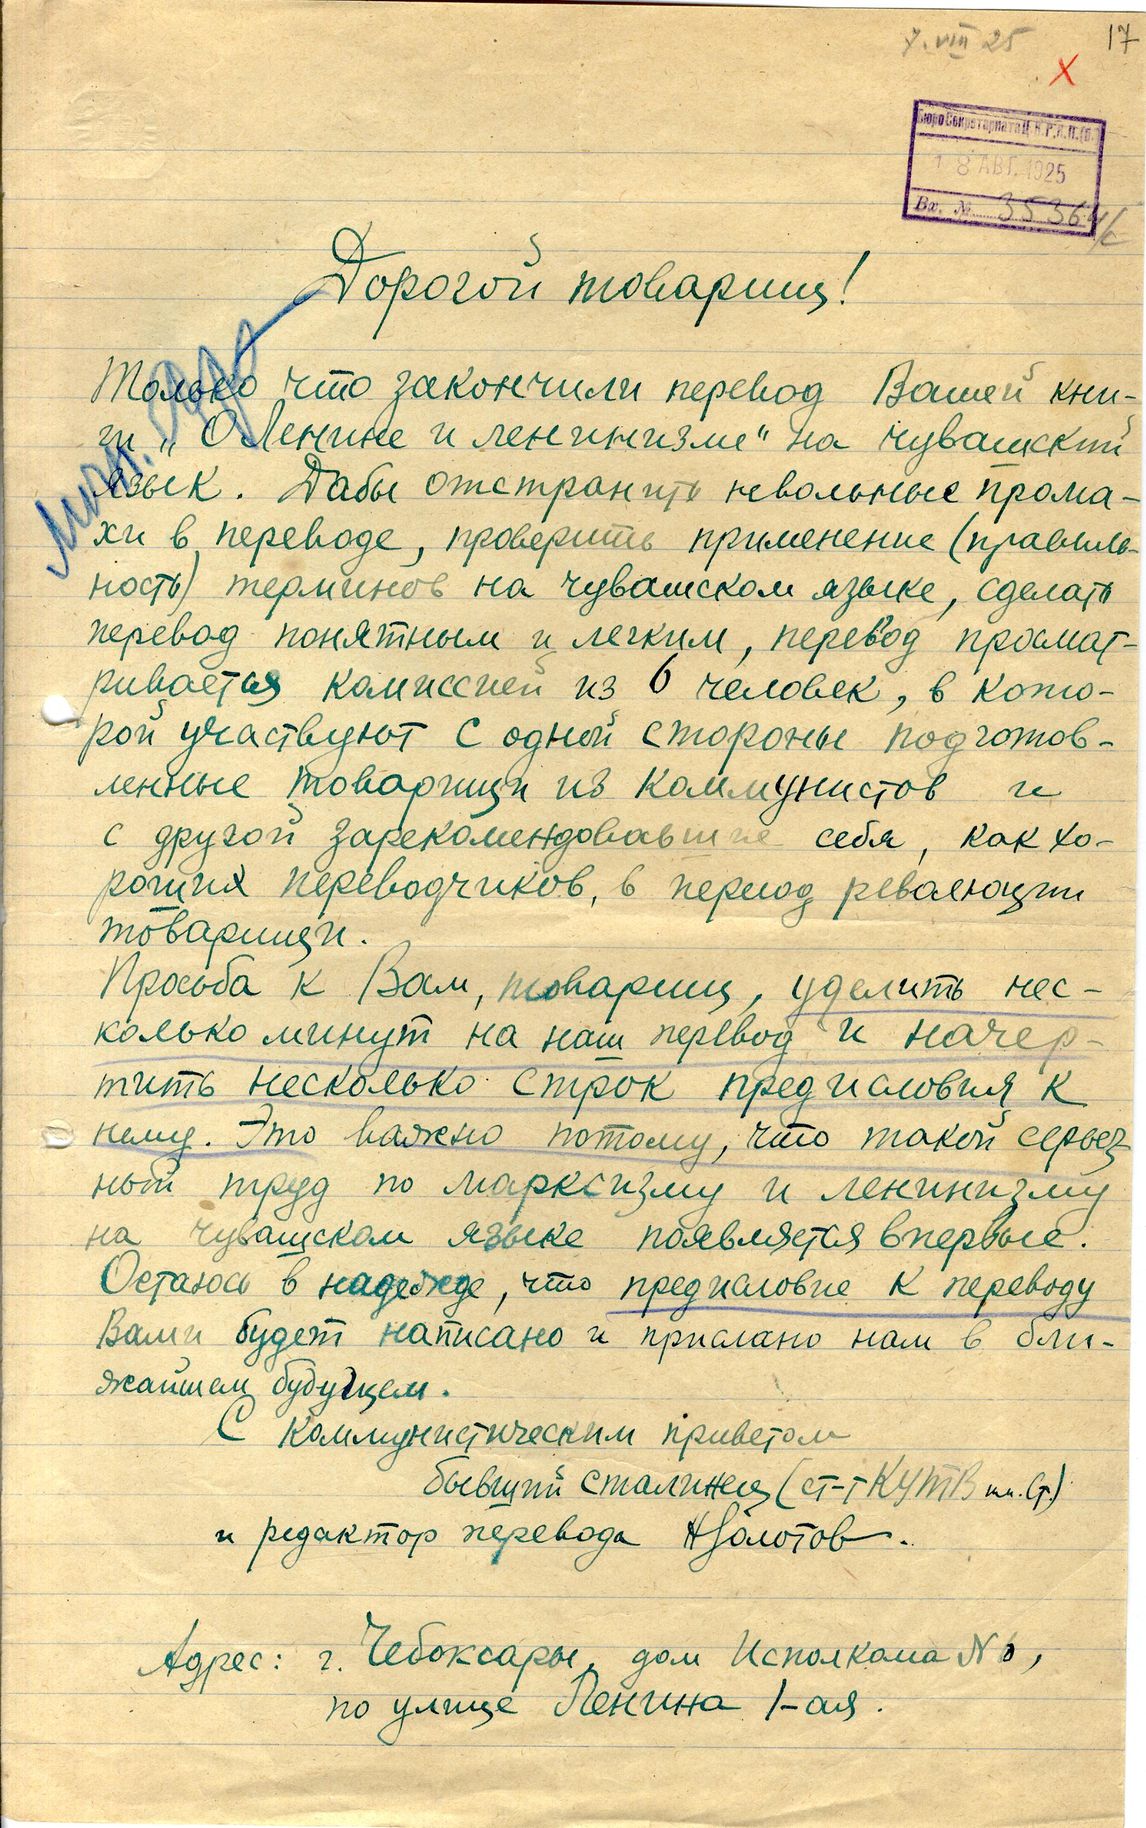 7.VIII 25
17
X
Бюро Секретариата Ц.К.Р.К.П.(б.)
18 АВГ. 1925
Вх. № 35364/с
Дорогой товарищ!
Только что закончили перевод Вашей кни-
ги „О Ленине и ленинизме" на чувашский
язык. Дабы отстранить невольные прома-
хи в переводе, проверить применение (правиль-
ность) терминов на чувашском языке, сделать
перевод понятным и легким, перевод просмат-
ривается комиссией из 6 человек, в кото-
рой участвуют с одной стороны подготов-
ленные товарищи из коммунистов и
с другой зарекомендовавшие себя, как хо-
роших переводчиков, в период революции
товарищи.
Просьба к Вам, товарищ, уделить нес-
колько минут на наш перевод и начер-
тить несколько строк предисловия к
нему. Это важно потому, что такой серьез
ный труд по марксизму и ленинизму
на чувашском языке появляется впервые.
Остаюсь в надежде, что предисловие к переводу
Вами будет написано и прислано нам в бли-
жайшем будущем.
С коммунистическим приветом
бывший сталинец (ст-т КУТВ им. Ст.)
и редактор перевода Н Золотов.
Адрес: г. Чебоксары, дом Исполкома № 6,
по улице Ленина 1-ая.